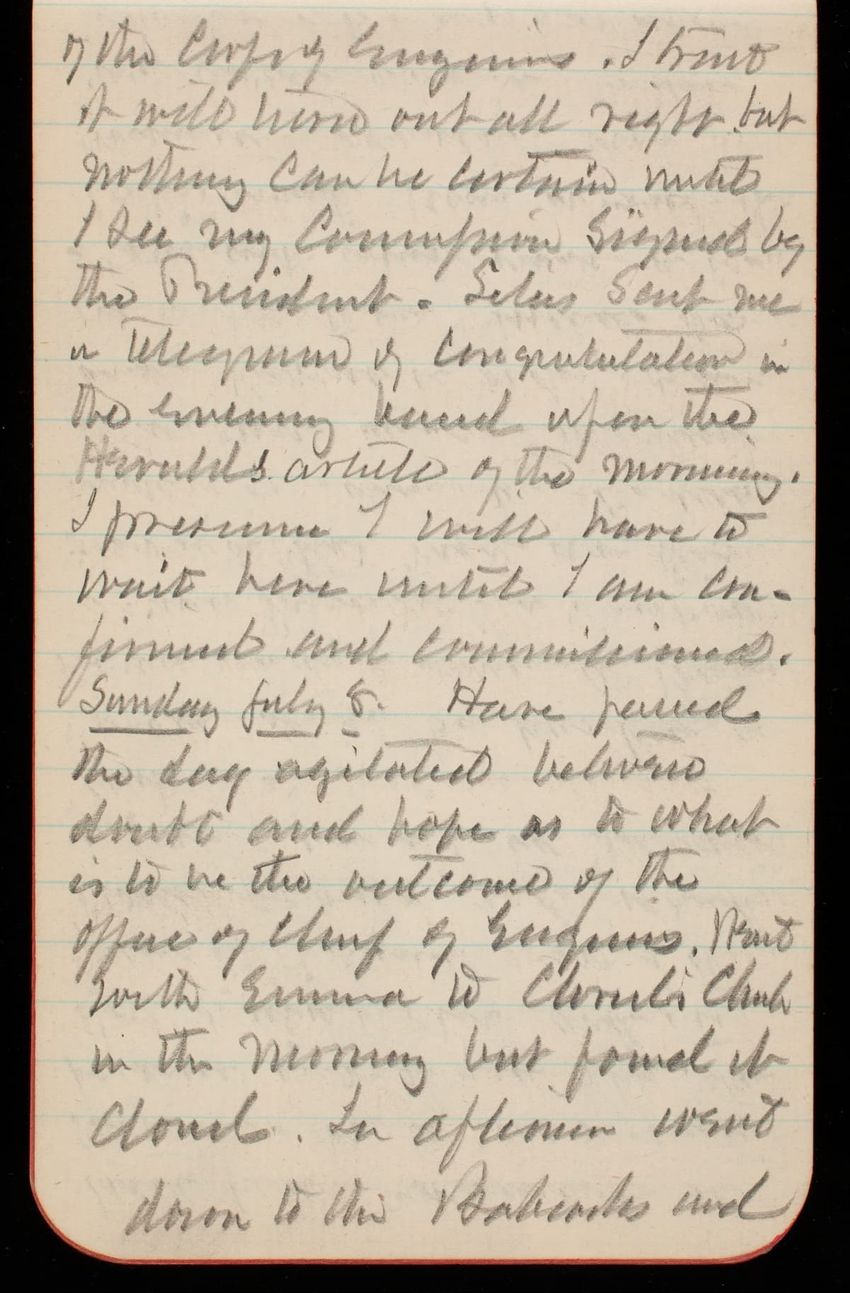 of the Corps of Engineers. I trust
it will turn out all right but
nothing can be certain until
I see my Commission signed by
the President. Selus sent me
a telegram of congratulation in
the evening based upon the
Herald's article of the morning.
I presume I will have to
wait here until I am con-
firmed and commissioned.
Sunday July 8. Have passed
the day agitated between
doubt and hope as to what
is to be the outcome of the
office of Chief of Engineers. Went
with Emma to Church
in the morning but found it
closed. In afternoon went
down to the Babcocks and